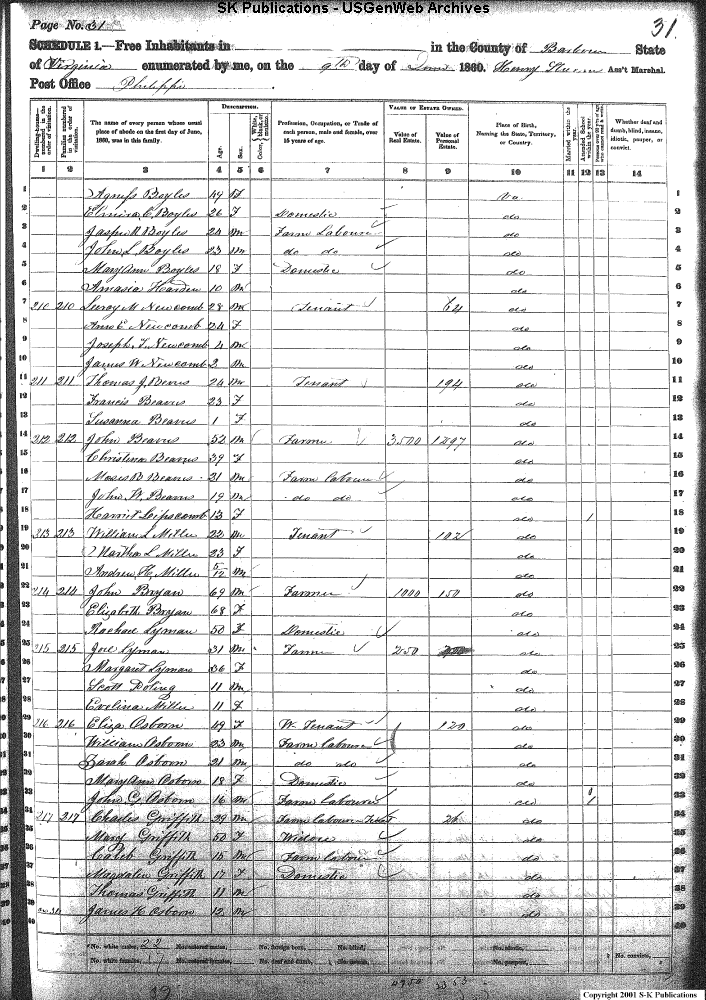 SK Publications - USGenWeb Archives
Page No. 31
31.
SCHEDULE 1.—Free Inhabitants in in the County of Barbour State
of Virginia enumerated by me, on the 9th day of June 1860. Henry Ass't Marshal.
Post Office Philippi
DESCRIPTION. VALUE OF ESTATE OWNED.
Dwelling-houses—numbered in the order of visitation. Families numbered in the order of visitation. The name of every person whose usual place of abode on the first day of June, 1860, was in this family. Age. Sex. Color, White, black, or mulatto. Profession, Occupation, or Trade of each person, male and female, over 15 years of age. Value of Real Estate. Value of Personal Estate. Place of Birth, Naming the State, Territory, or Country. Married within the year. Attended School within the year. Whether deaf and dumb, blind, insane, idiotic, pauper, or convict.
1 2 3 4 5 6 7 8 9 10 11 12 13 14
1 Agness Boyles 49 F Va. 1
2 Elmira C. Boyles 26 F Domestic do 2
3 Jasper N Boyles 24 m Farm Labourer do 3
4 John L Boyles 23 m do do do 4
5 Mary Ann Boyles 18 F Domestic do 5
6 Amasia Harden 10 m do 6
7 210 210 Leroy M Newcomb 28 m Tenant 64 do 7
8 Ann E Newcomb 24 F do 8
9 Joseph T. Newcomb 4 m do 9
10 James W Newcomb 2 m do 10
11 211 211 Thomas J. Beavers 24 m Tenant 194 do 11
12 Francis Beavers 23 F do 12
13 Susanna Beavers 1 F do 13
14 212 212 John Beavers 52 m Farmer 3500 1097 do 14
15 Christina Beavers 39 F do 15
16 Moses B Beavers 21 m Farm labourer do 16
17 John W. Beavers 19 m do do do 17
18 Harriet Lipscomb 13 F do 1 18
19 213 213 William L Miller 22 m Tenant 102 do 19
20 Martha L Miller 23 F do 20
21 Andrew H. Miller 5/12 m do 21
22 214 214 John Bryan 69 m Farmer 1000 150 do 22
23 Elizabeth Bryan 68 F do 23
24 Rachael Lyman 50 F Domestic do 24
25 215 215 Joel Lyman 31 m Farmer 250 do 25
26 Margaret Lyman 36 F do 26
27 Scott Doting 11 m do 27
28 Evelina Miller 11 F do 28
29 216 216 Eliza Osborn 49 F W. Tenant 120 do 29
30 William Osborn 23 m Farm labourer do 30
31 Sarah Osborn 21 m do do do 31
32 Mary Ann Osborn 18 F Domestic do 32
33 John G. Osborn 16 m Farm labourer do 1 33
34 217 217 Charles Griffith 29 m Farm labourer Tenant 26 do 34
35 Mary Griffith 50 F Widow do 35
36 Caleb Griffith 15 m Farm labour do 36
37 Magdalen Griffith 17 F Domestic do 37
38 Thomas Griffith 11 m do 38
39 James H Osborn 12 m do 39
40 40
No. white males, 22 No. colored males, No. foreign born, No. blind, No. idiotic, No. convicts,
No. white females, 17 No. colored females, No. deaf and dumb, No. insane, No. paupers,
Copyright 2001 S-K Publications